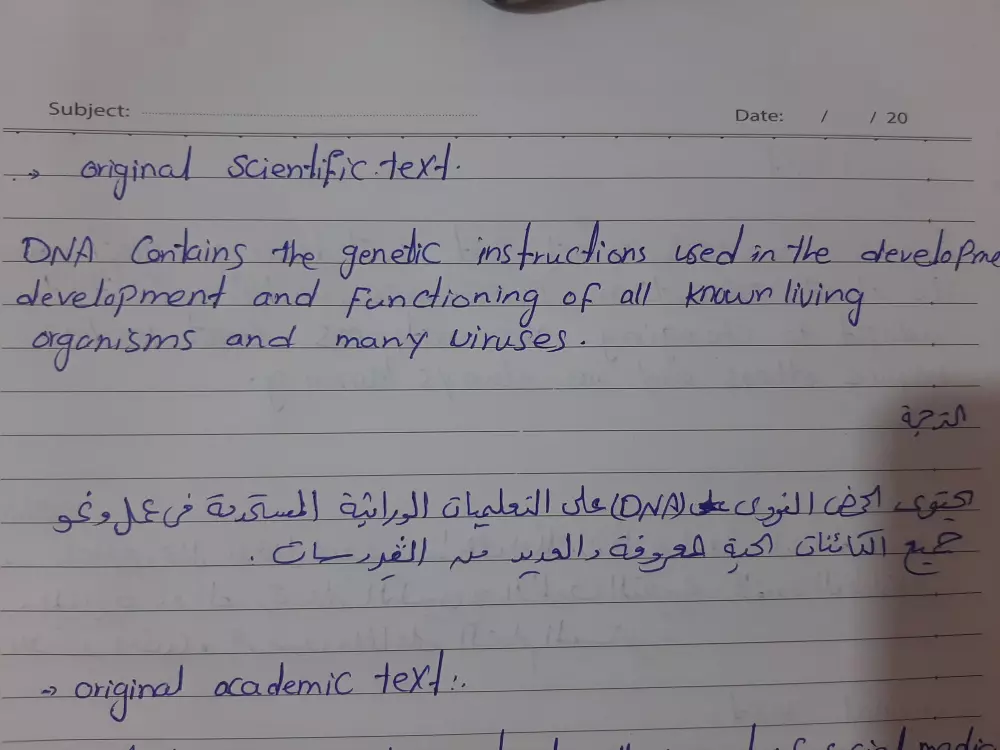 Subject:
Date: / / 20
→ original scientific text.
DNA Contains the genetic instructions used in the developme
development and functioning of all known living
organisms and many viruses.
الترجمة
يحتوى الحمض النووى (DNA) على التعليمات الوراثية المستخدمة فى عمل ونمو
جميع الكائنات الحية المعروفة والعديد من الفيروسات .
→ original academic text:.